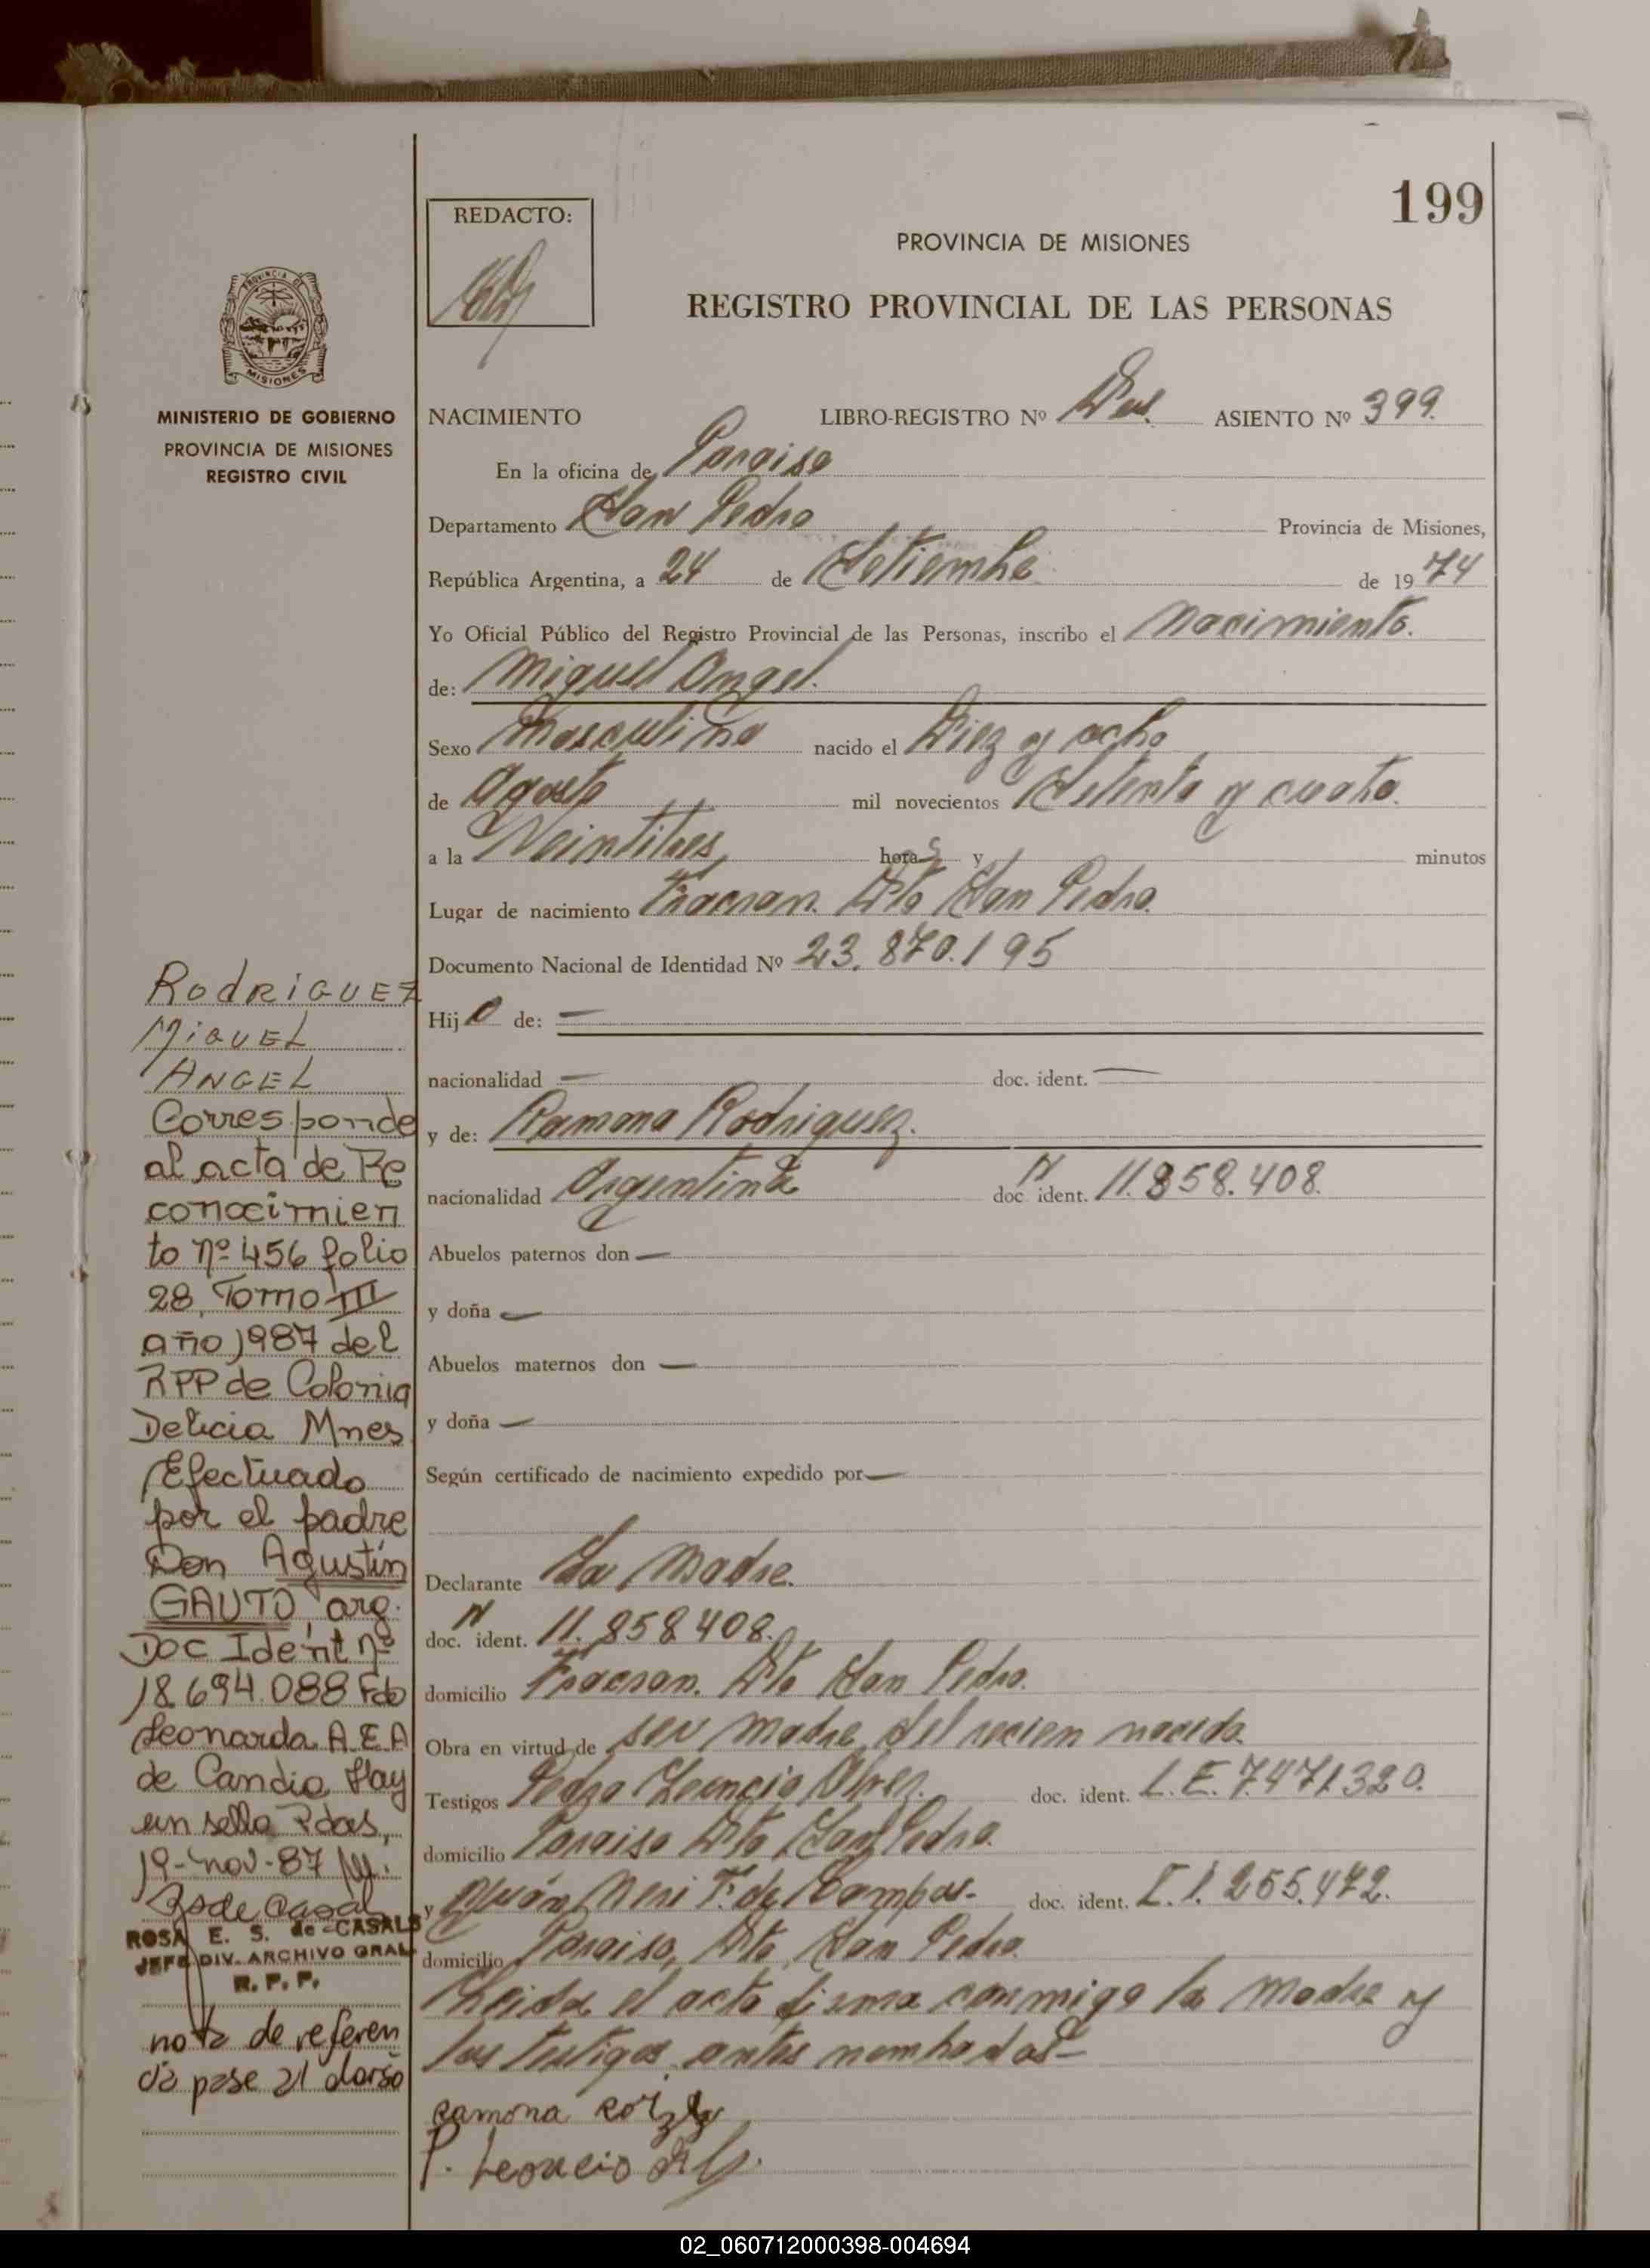 199
REDACTO:
PROVINCIA DE MISIONES
REGISTRO PROVINCIAL DE LAS PERSONAS
PROVINCIA DE MISIONES
MINISTERIO DE GOBIERNO
PROVINCIA DE MISIONES
REGISTRO CIVIL
NACIMIENTO LIBRO-REGISTRO Nº Dos. ASIENTO Nº 399.
En la oficina de Paraiso
Departamento San Pedro Provincia de Misiones,
República Argentina, a 24 de Setiembre de 1974
Yo Oficial Público del Registro Provincial de las Personas, inscribo el Nacimiento.
de: Miguel Angel.
Sexo Masculino nacido el Diez y ocho
de Agosto mil novecientos Setenta y cuatro.
a la Veintitres, horas y minutos
Lugar de nacimiento Fracran. Dto San Pedro.
Documento Nacional de Identidad Nº 23.870.195
Hijo de: —
nacionalidad — doc. ident. —
y de: Ramona Rodriguez.
nacionalidad Argentina doc. N ident. 11.858.408.
Abuelos paternos don —
y doña —
Abuelos maternos don —
y doña —
Según certificado de nacimiento expedido por —
Declarante La Madre.
doc. N ident. 11.858408.
domicilio Fracran. Dto San Pedro.
Obra en virtud de ser madre del recien nacido.
Testigos Pedro Leoncio doc. ident. L.E. 7.471.320.
domicilio Paraiso Dto San Pedro.
y Neri F. de Campos- doc. ident. 255.472.
domicilio Paraiso, Dto San Pedro.
Leida el acta firma conmigo la Madre y
los testigos antes nombrados-
Ramona
P. Leoncio
RODRIGUEZ
MIGUEL
ANGEL
Corresponde
al acta de Re
conocimien
to nº 456 folio
28, Tomo III
año 1987 del
RPP de Colonia
Delicia Mnes
Efectuado
por el padre
Don Agustín
GAUTO arg.
Doc Ident nº
18694.088 Fdo
Leonarda A.E.A
de Candia Hay
un sello Pdas,
19-nov-87
R de Casal
ROSA E. S. de CASALS
JEFE DIV. ARCHIVO GRAL
R. P. P.
nota de referen
cia pase al dorso
02_060712000398-004694